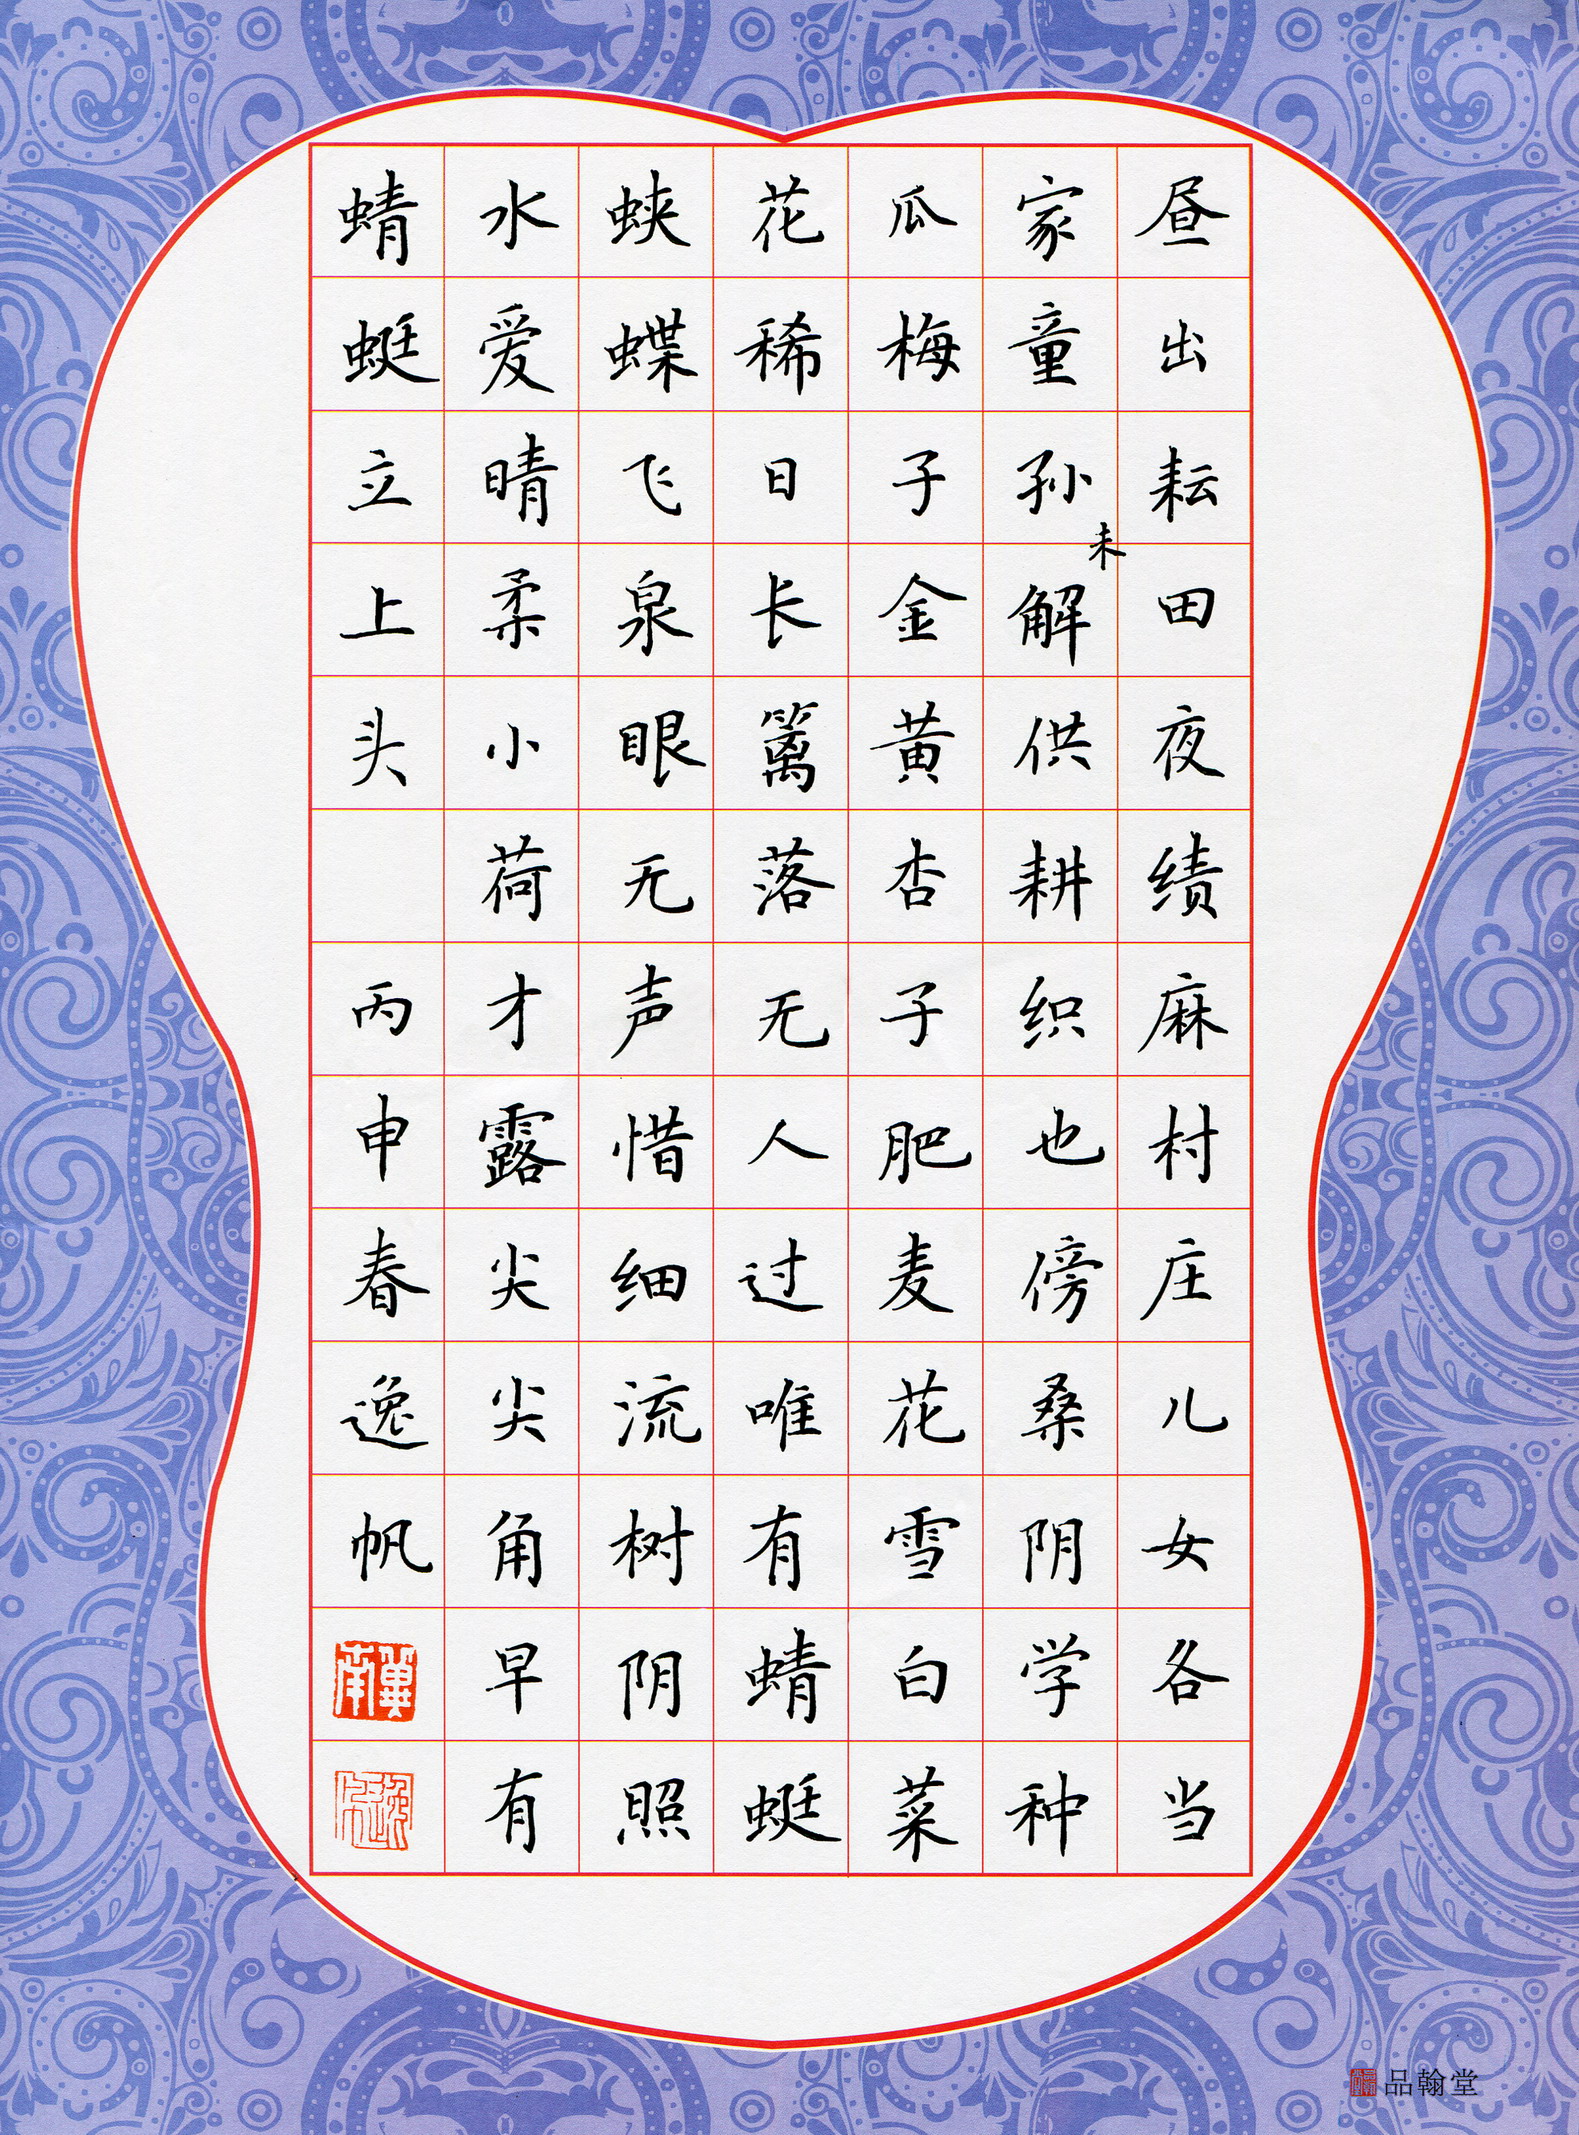 昼出耘田夜绩麻村庄儿女各当
家童孙未解供耕织也傍桑阴学种
瓜梅子金黄杏子肥麦花雪白菜
花稀日长篱落无人过唯有蜻蜓
蛱蝶飞泉眼无声惜细流树阴照
水爱晴柔小荷才露尖尖角早有
蜻蜓立上头 丙申春逸帆
冀南
品翰堂